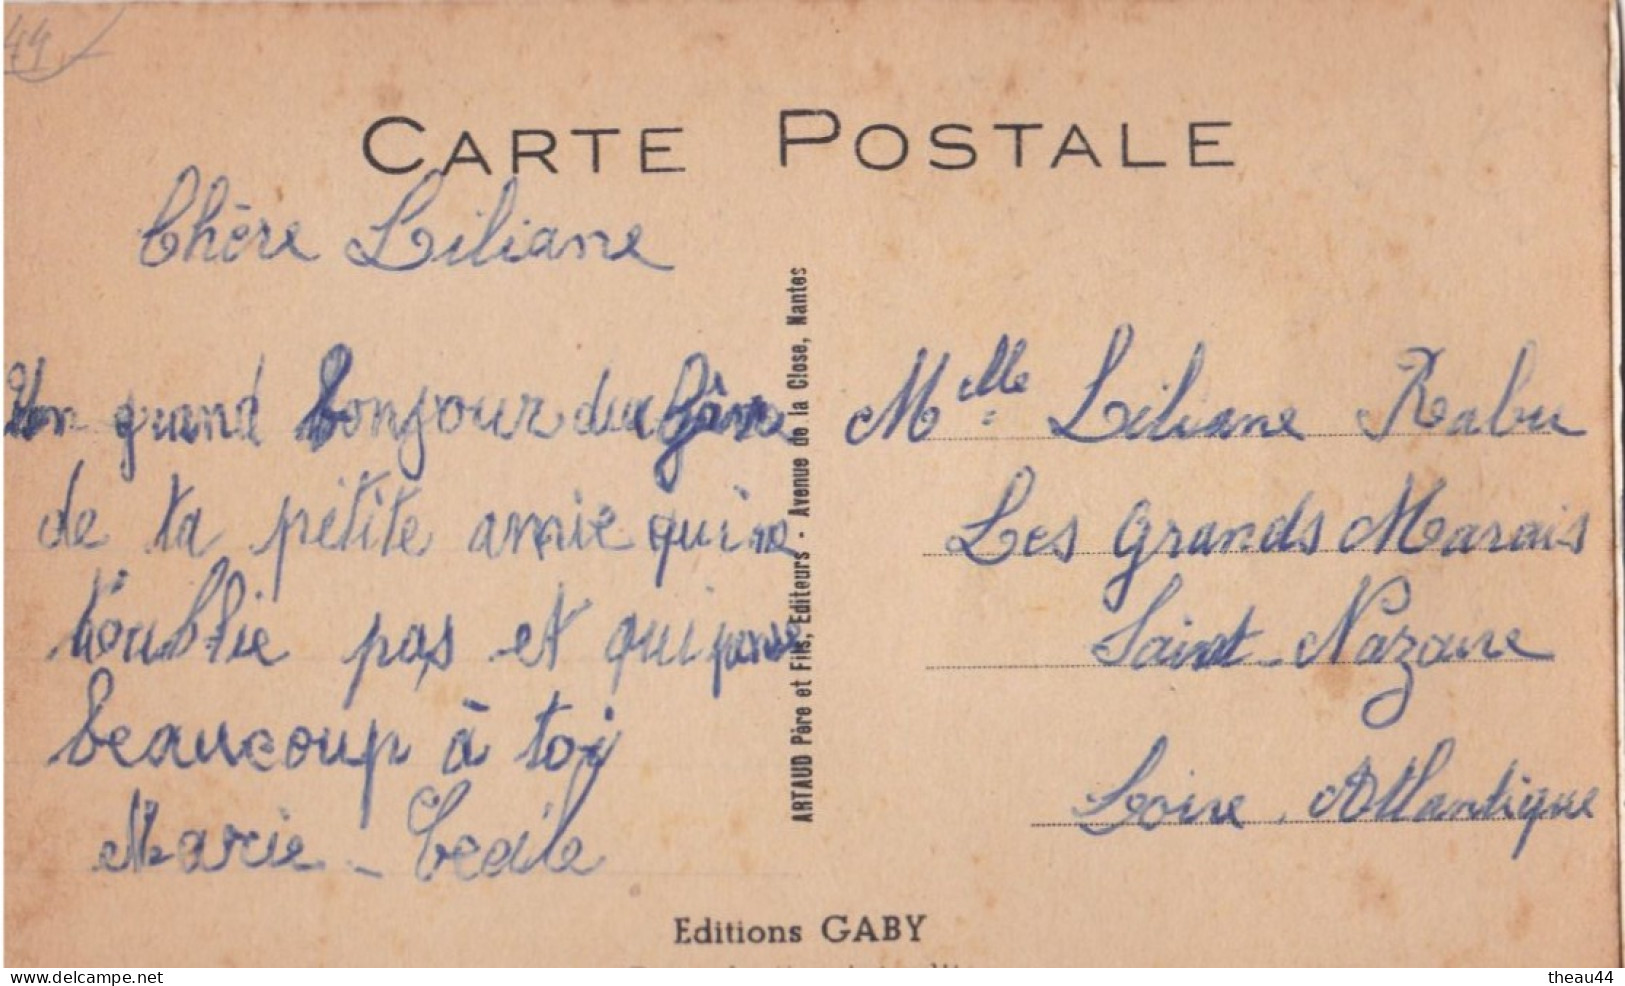 44
CARTE POSTALE
Chère Liliane
Un grand bonjour du
de ta pétite amie qui ne
t'oublie pas et qui pense
beaucoup à toi
Marie-Cecile
ARTAUD Père et Fils, Editeurs - Avenue de la Close, Nantes
Mlle Liliane Rabu
Les Grands Marais
Saint-Nazaire
Loire-Atlantique
Editions GABY
delcampe.net
theau44